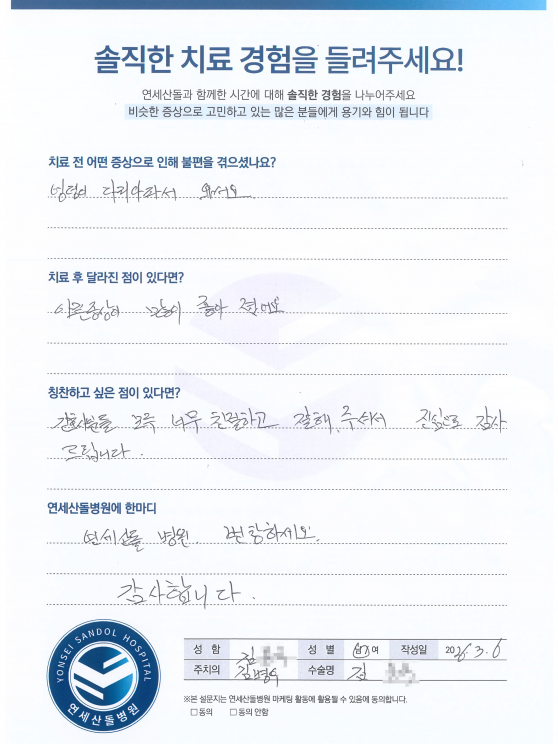 솔직한 치료 경험을 들려주세요!
연세산돌과 함께한 시간에 대해 솔직한 경험을 나누어주세요
비슷한 증상으로 고민하고 있는 많은 분들에게 용기와 힘이 됩니다
치료 전 어떤 증상으로 인해 불편을 겪으셨나요?
엉덩이 다리아파서 왔서요
치료 후 달라진 점이 있다면?
아픈증상이 많이 좋아 졌어요
칭찬하고 싶은 점이 있다면?
간호사분들 모두 너무 친절하고 잘해 주셔서 진심으로 감사
드립니다.
연세산돌병원에 한마디
연세산돌 병원. 번창하세요.
감사합니다.
성 함 김 성 별 남 여 작성일 2026. 3. 6
주치의 김병수 수술명 김
※본 설문지는 연세산돌병원 마케팅 활동에 활용될 수 있음에 동의합니다.
□ 동의 □ 동의 안함
YONSEI SANDOL HOSPITAL
연세산돌병원